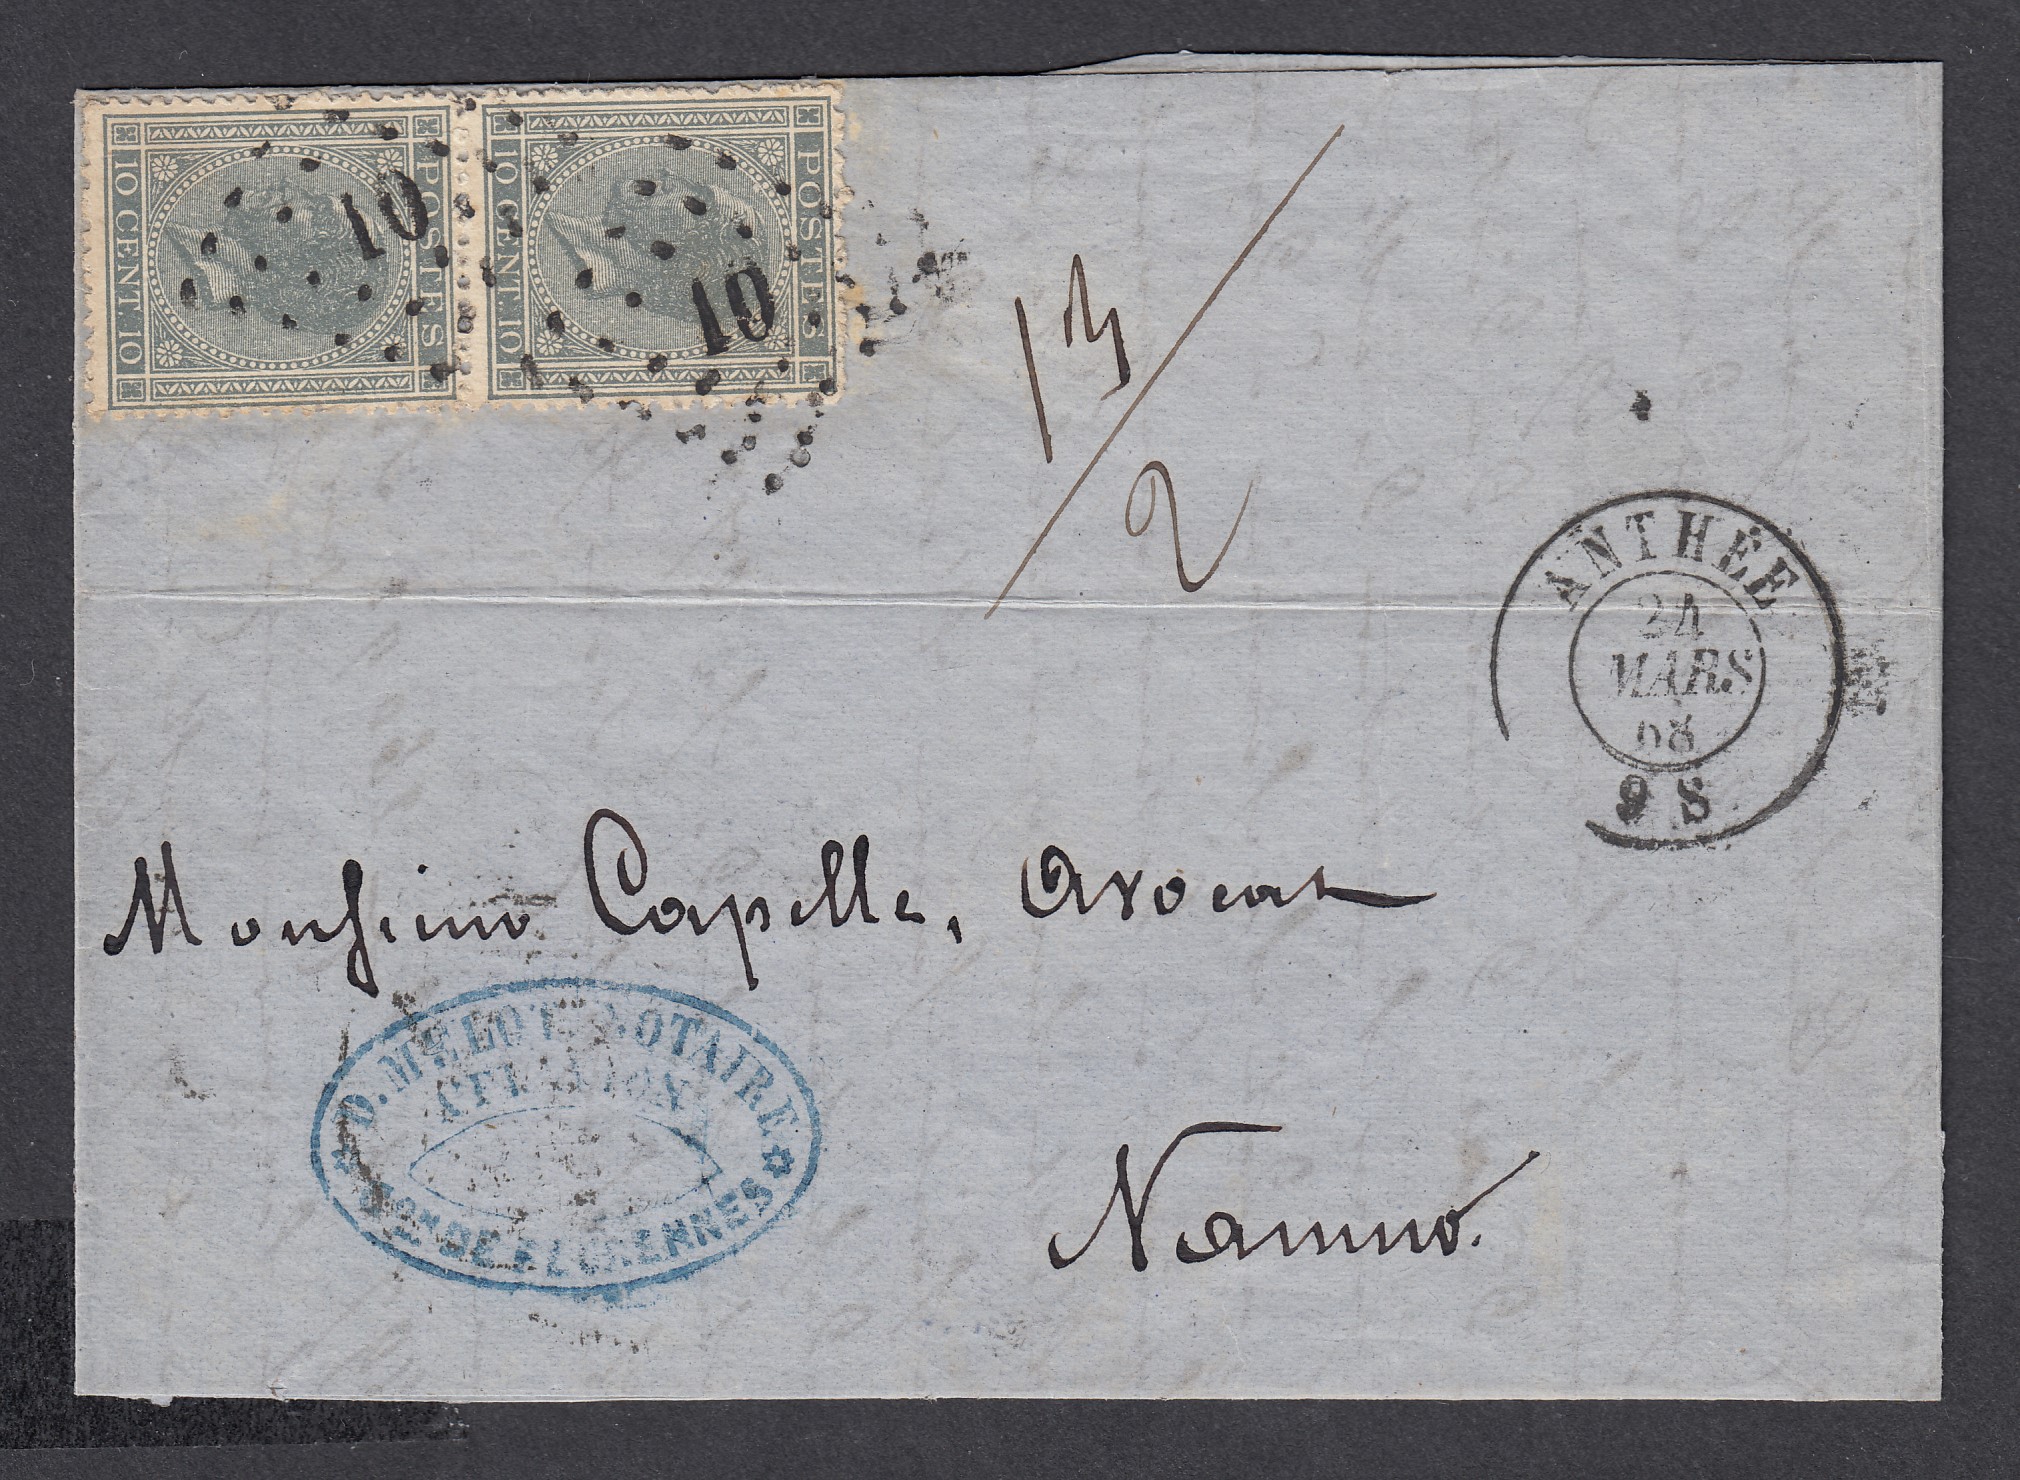 POSTES
10 CENT. 10
10
POSTES
10 CENT. 10
10
13/2
ANTHÉE
24
MARS
68
9 S
Monsieur Capelle, Avocat
D. MELOT NOTAIRE
DE FLORENNES
Namur.